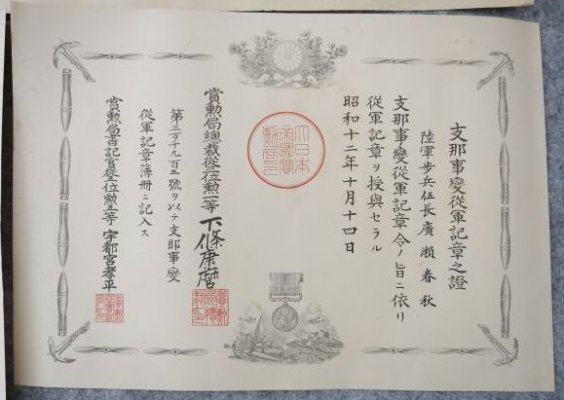 支那事變從軍記章之證
陸軍步兵伍長廣瀨春秋
支那事變從軍記章令ノ旨ニ依リ
從軍記章ヲ授與セラル
昭和十二年十月十四日
大日本
帝國賞
勳局印
賞勳局總裁從三位勳一等下條康麿
號ヲ以テ支那事變
從軍記章簿册ニ記入ス
賞勳局書記官 宇都宮孝平